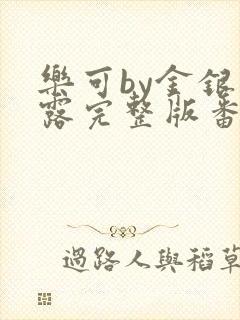 樂可by金銀
露完整版番
過路人與稻草